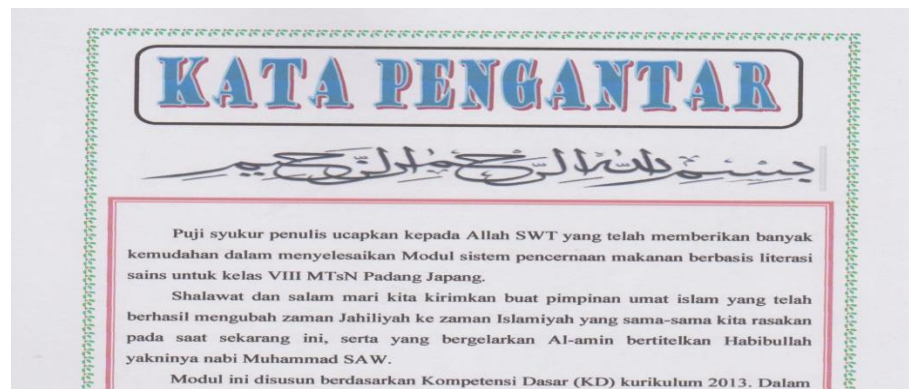 KATA PENGANTAR
بسم الله الرحمن الرحيم
Puji syukur penulis ucapkan kepada Allah SWT yang telah memberikan banyak
kemudahan dalam menyelesaikan Modul sistem pencernaan makanan berbasis literasi
sains untuk kelas VIII MTsN Padang Japang.
Shalawat dan salam mari kita kirimkan buat pimpinan umat islam yang telah
berhasil mengubah zaman Jahiliyah ke zaman Islamiyah yang sama-sama kita rasakan
pada saat sekarang ini, serta yang bergelarkan Al-amin bertitelkan Habibullah
yakninya nabi Muhammad SAW.
Modul ini disusun berdasarkan Kompetensi Dasar (KD) kurikulum 2013. Dalam